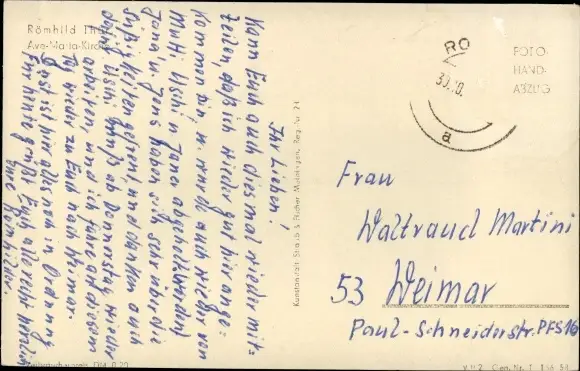 Römhild Thür.
Ave-Maria-Kirche
Ihr Lieben!
Kann Euch auch diesmal wieder mit-
teilen, daß ich wieder gut hier ange-
kommen bin u. wurde auch wieder von
Mutti, Uschi u. Jana abgeholt.
Jana u. Jens haben sich sehr über die
gefreut, und danken auch
Uschi muß ab Donnerstag wieder
arbeiten und ich fahre an diesem
Tag wieder zu Euch nach Weimar.
Sonst ist hier alles noch in Ordnung
Für heute grüßt Euch alle recht herzlich
Eure
Kunstanstalt Straub & Fischer Meiningen, Reg.-Nr. 74
RO
30.10.
a
FOTO-
HAND-
ABZUG
Frau
Waltraud Martini
53 Weimar
Paul-Schneiderstr. PFS16